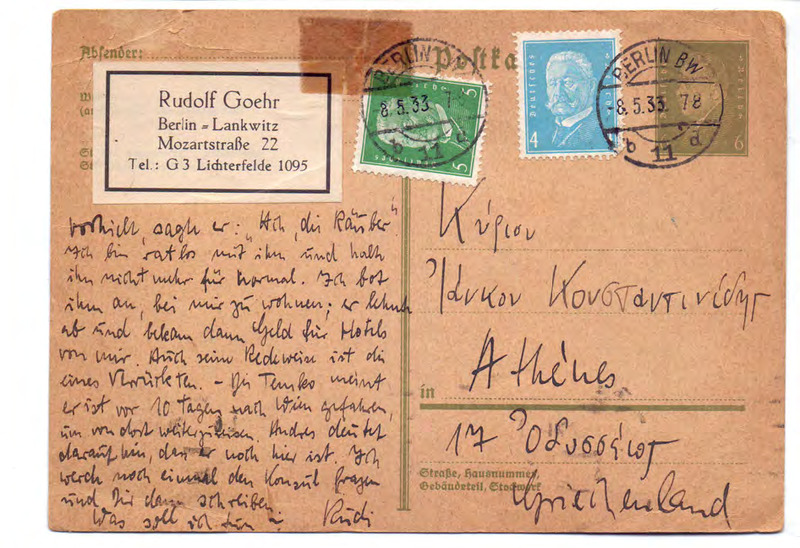 Absender:
Postka
Rudolf Goehr
Berlin-Lankwitz
Mozartstraße 22
Tel.: G 3 Lichterfelde 1095
BERLIN
8.5.33. 7
b 11 d
5
5
Deutsches
4
BERLIN SW
8.5.33. 78
b 11 d
6
vorhielt, sagte er: "Ach, die Räuber"
Ich bin ratlos mit ihm und halte
ihn nicht mehr für normal. Ich bot
ihm an, bei mir zu wohnen; er lehnte
ab und bekam dann Geld für Hotels
von mir. Auch seine Redeweise ist die
eines Verrückten. - Bei Temko meint
er ist vor 10 Tagen nach Wien gefahren,
um von dort weiterzureisen. Andres deutet
darauf hin, dass er noch hier ist. Ich
werde noch einmal den Konsul fragen
und Dir dann schreiben.
Was soll ich tun
Rudi
Κύριον
Γιάνκον Κουσταντινίδην
Athènes
in
17 Ὀδυσσέως
Straße, Hausnummer,
Gebäudeteil, Stockwerk
Griechenland